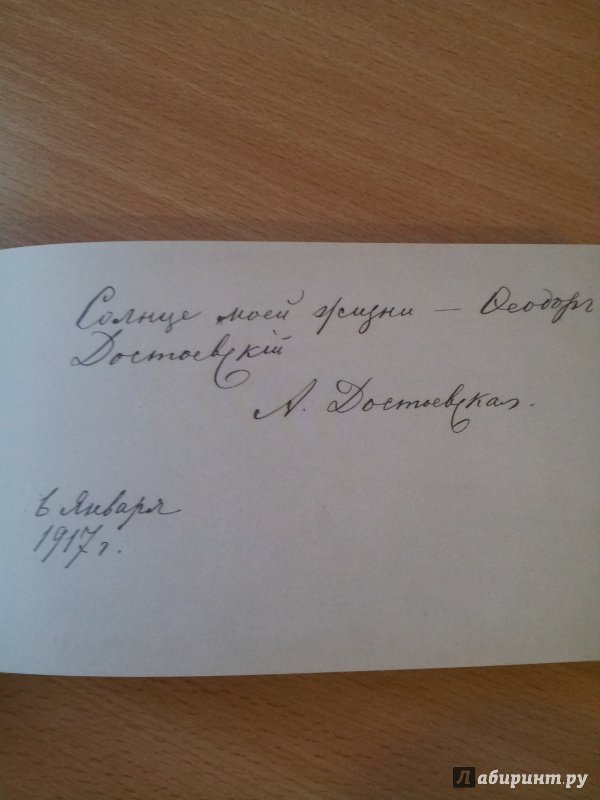 Солнце моей жизни — Ѳеодоръ
Достоевскій
А. Достоевская.
6 Января
1917 г.
Лабиринт.ру